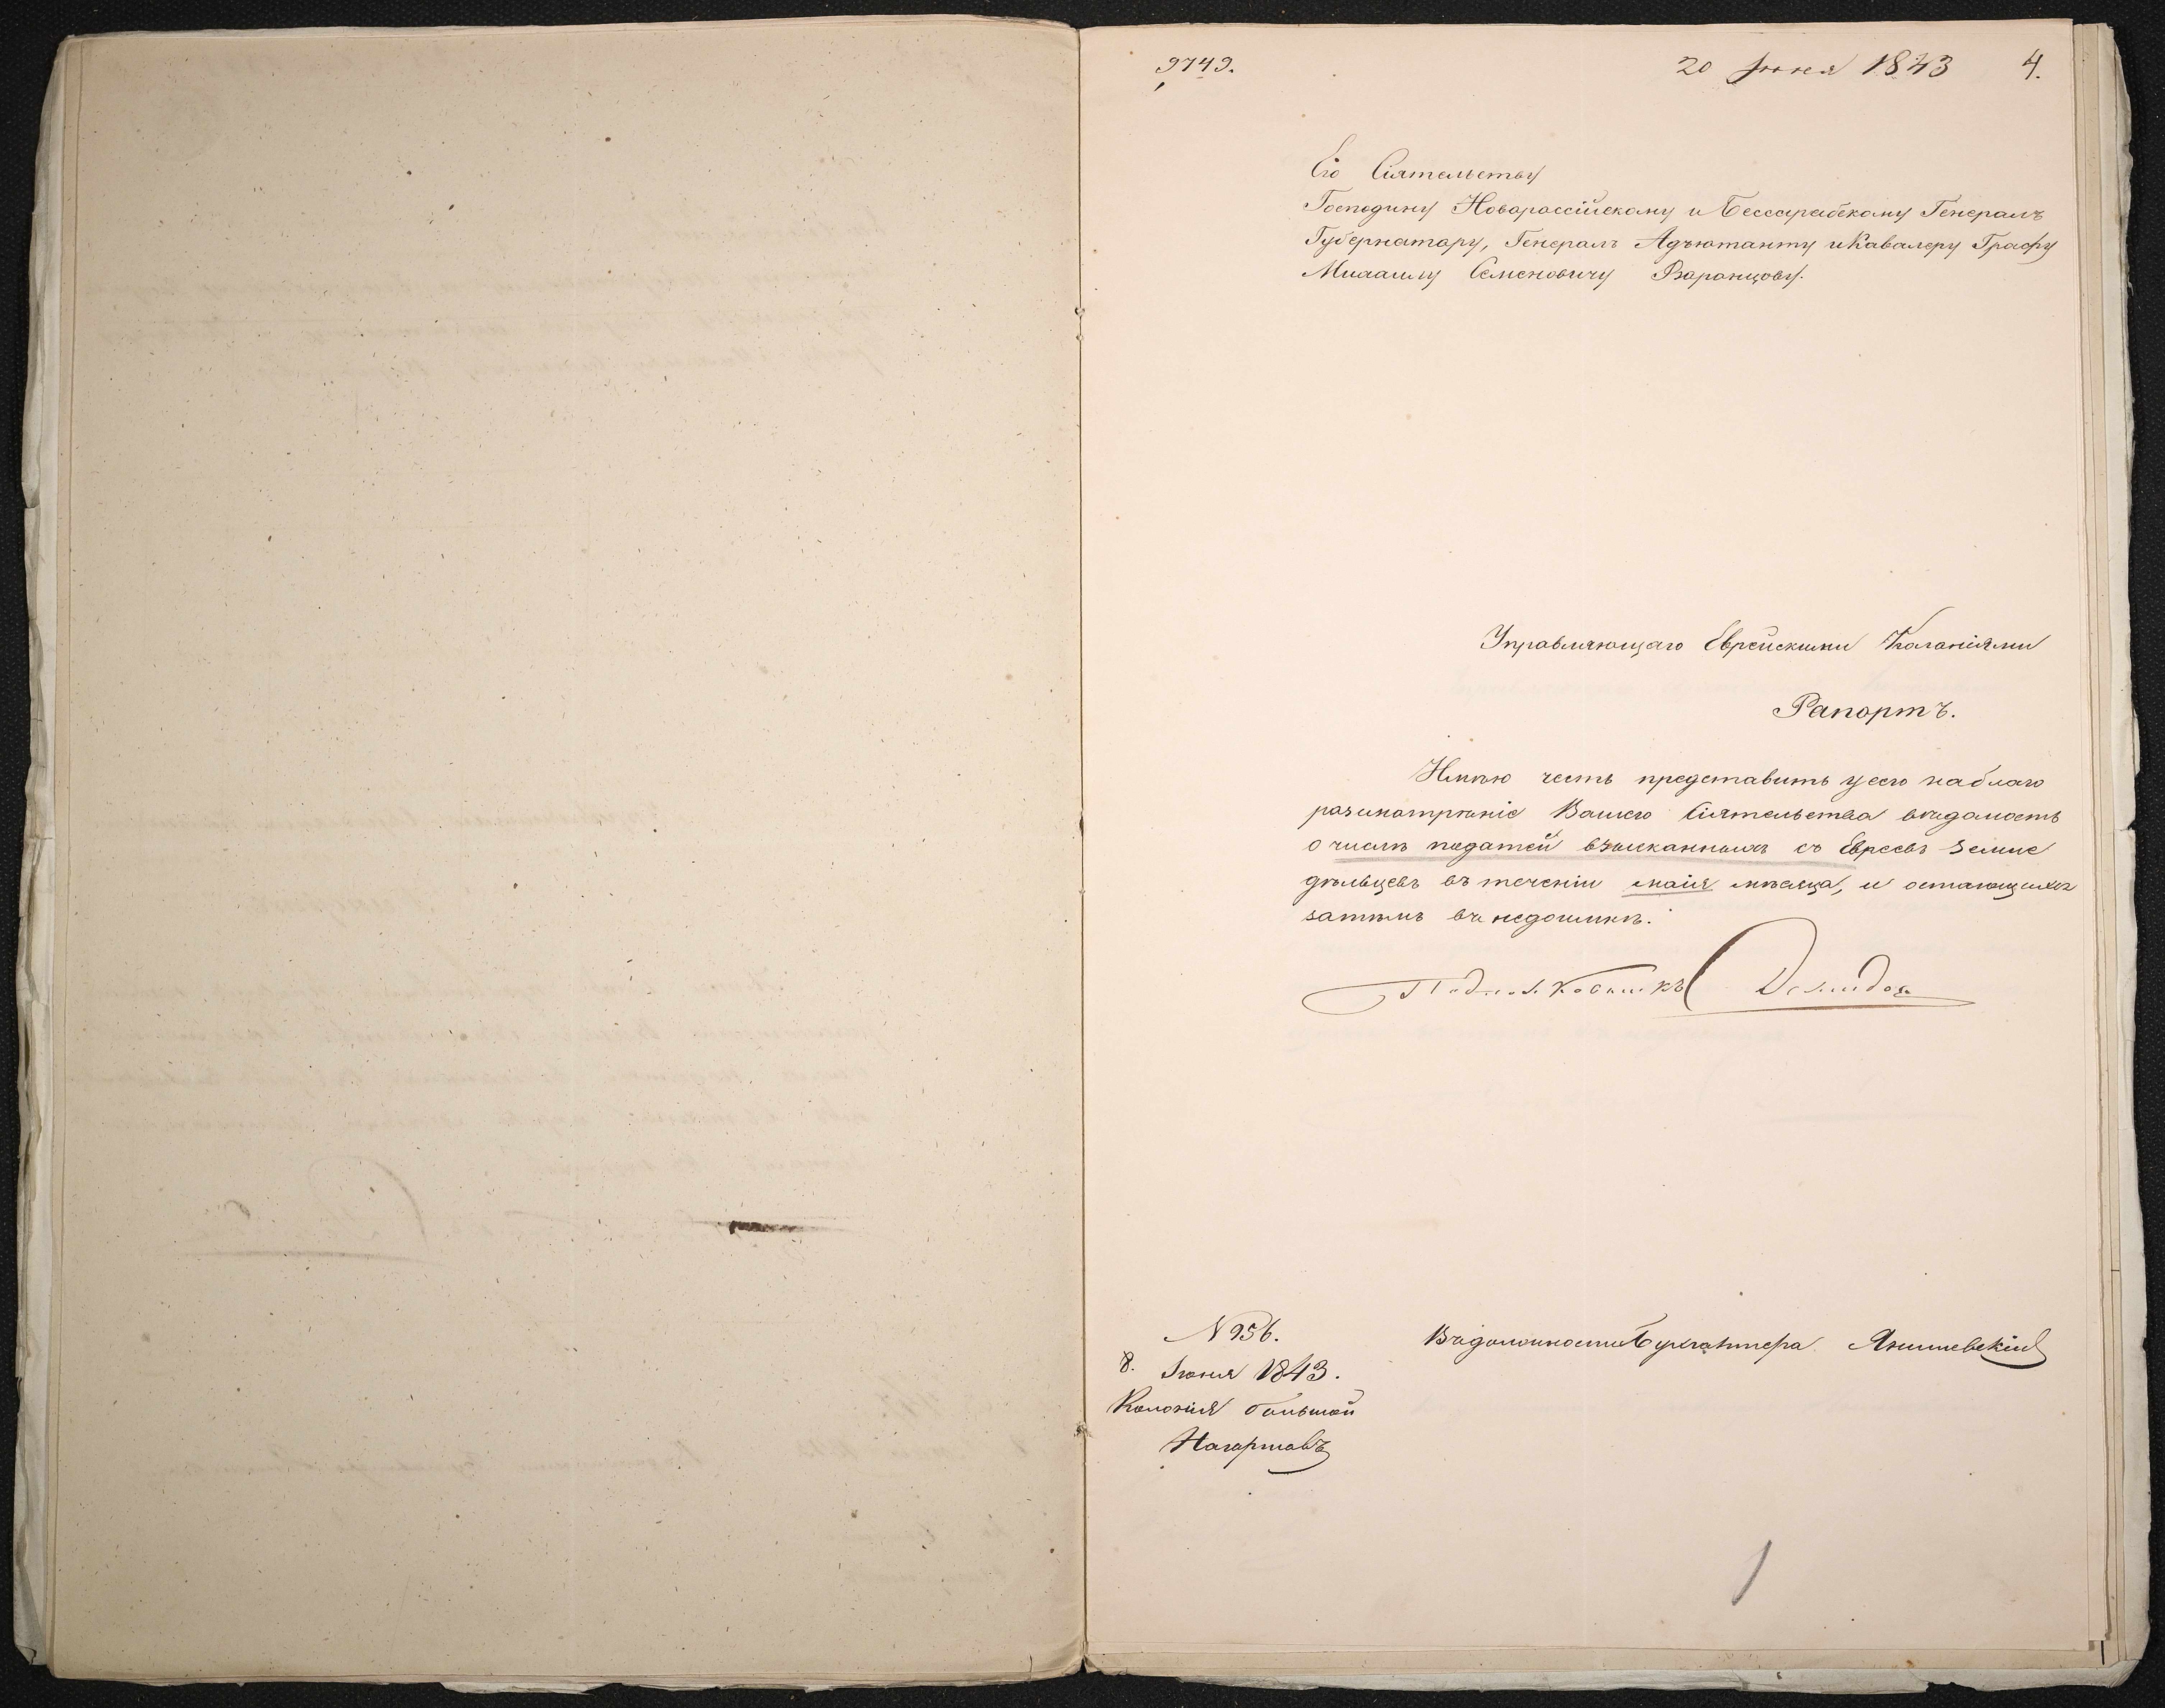 9749.
20 Июня 1843 4.
Его Сіятельству
Господину Новоросcійскому и Бессарабскому Генералъ
Губернатору, Генералъ Адъютанту и Кавалеру Графу
Михаилу Семеновичу Воронцову.
Управляющаго Еврейскими Колоніями
Рапортъ.
Имѣю честь представить у сего на благо
разсмотрѣніе Вашего Сіятельства вѣдомость
о числѣ податей взысканныхъ съ Евреевъ земле
дѣльцевъ въ теченіи маія мѣсяца, и остающихся
затѣмъ въ недоимкѣ.
Подполковникъ Демидовъ
N 956.
8. Іюня 1843.
Колонія большой
Нагартавъ
Въ должности Бухгалтера Янишевскій